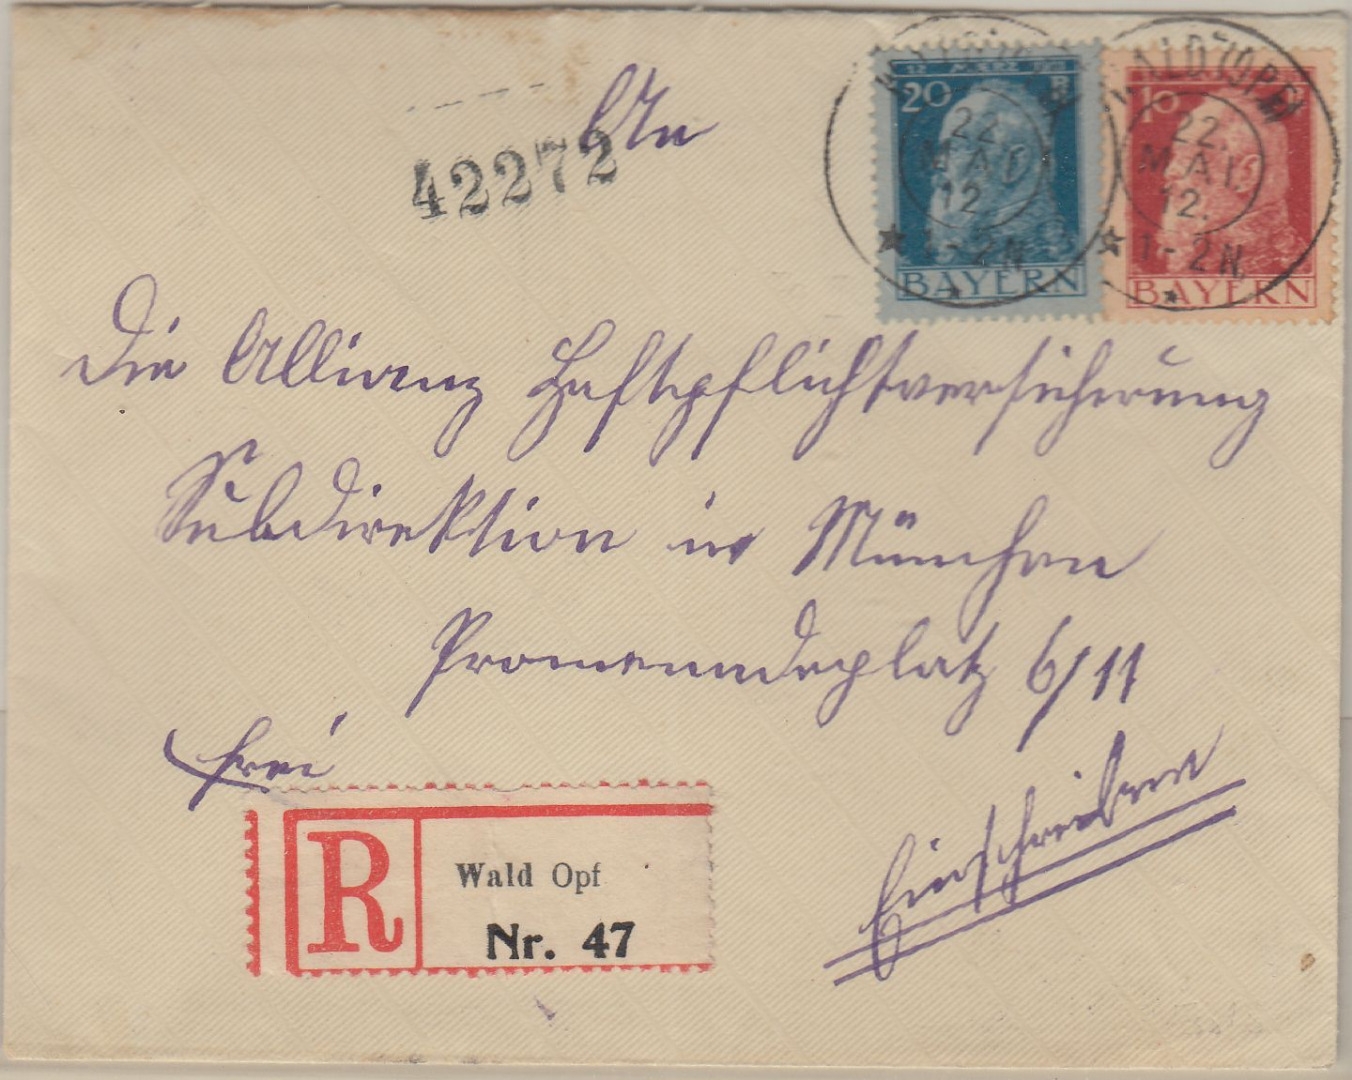 An
42272
20
12 MÄRZ 1911
BAYERN
10
BAYERN
WALD (OPF.)
22.
MAI.
12.
1-2N.
WALD (OPF.)
22.
MAI.
12.
1-2N.
Die Allianz Haftpflichtversicherung
Subdirektion in München
Promenadeplatz 6/11
frei
R
Wald Opf
Nr. 47
Einschreiben